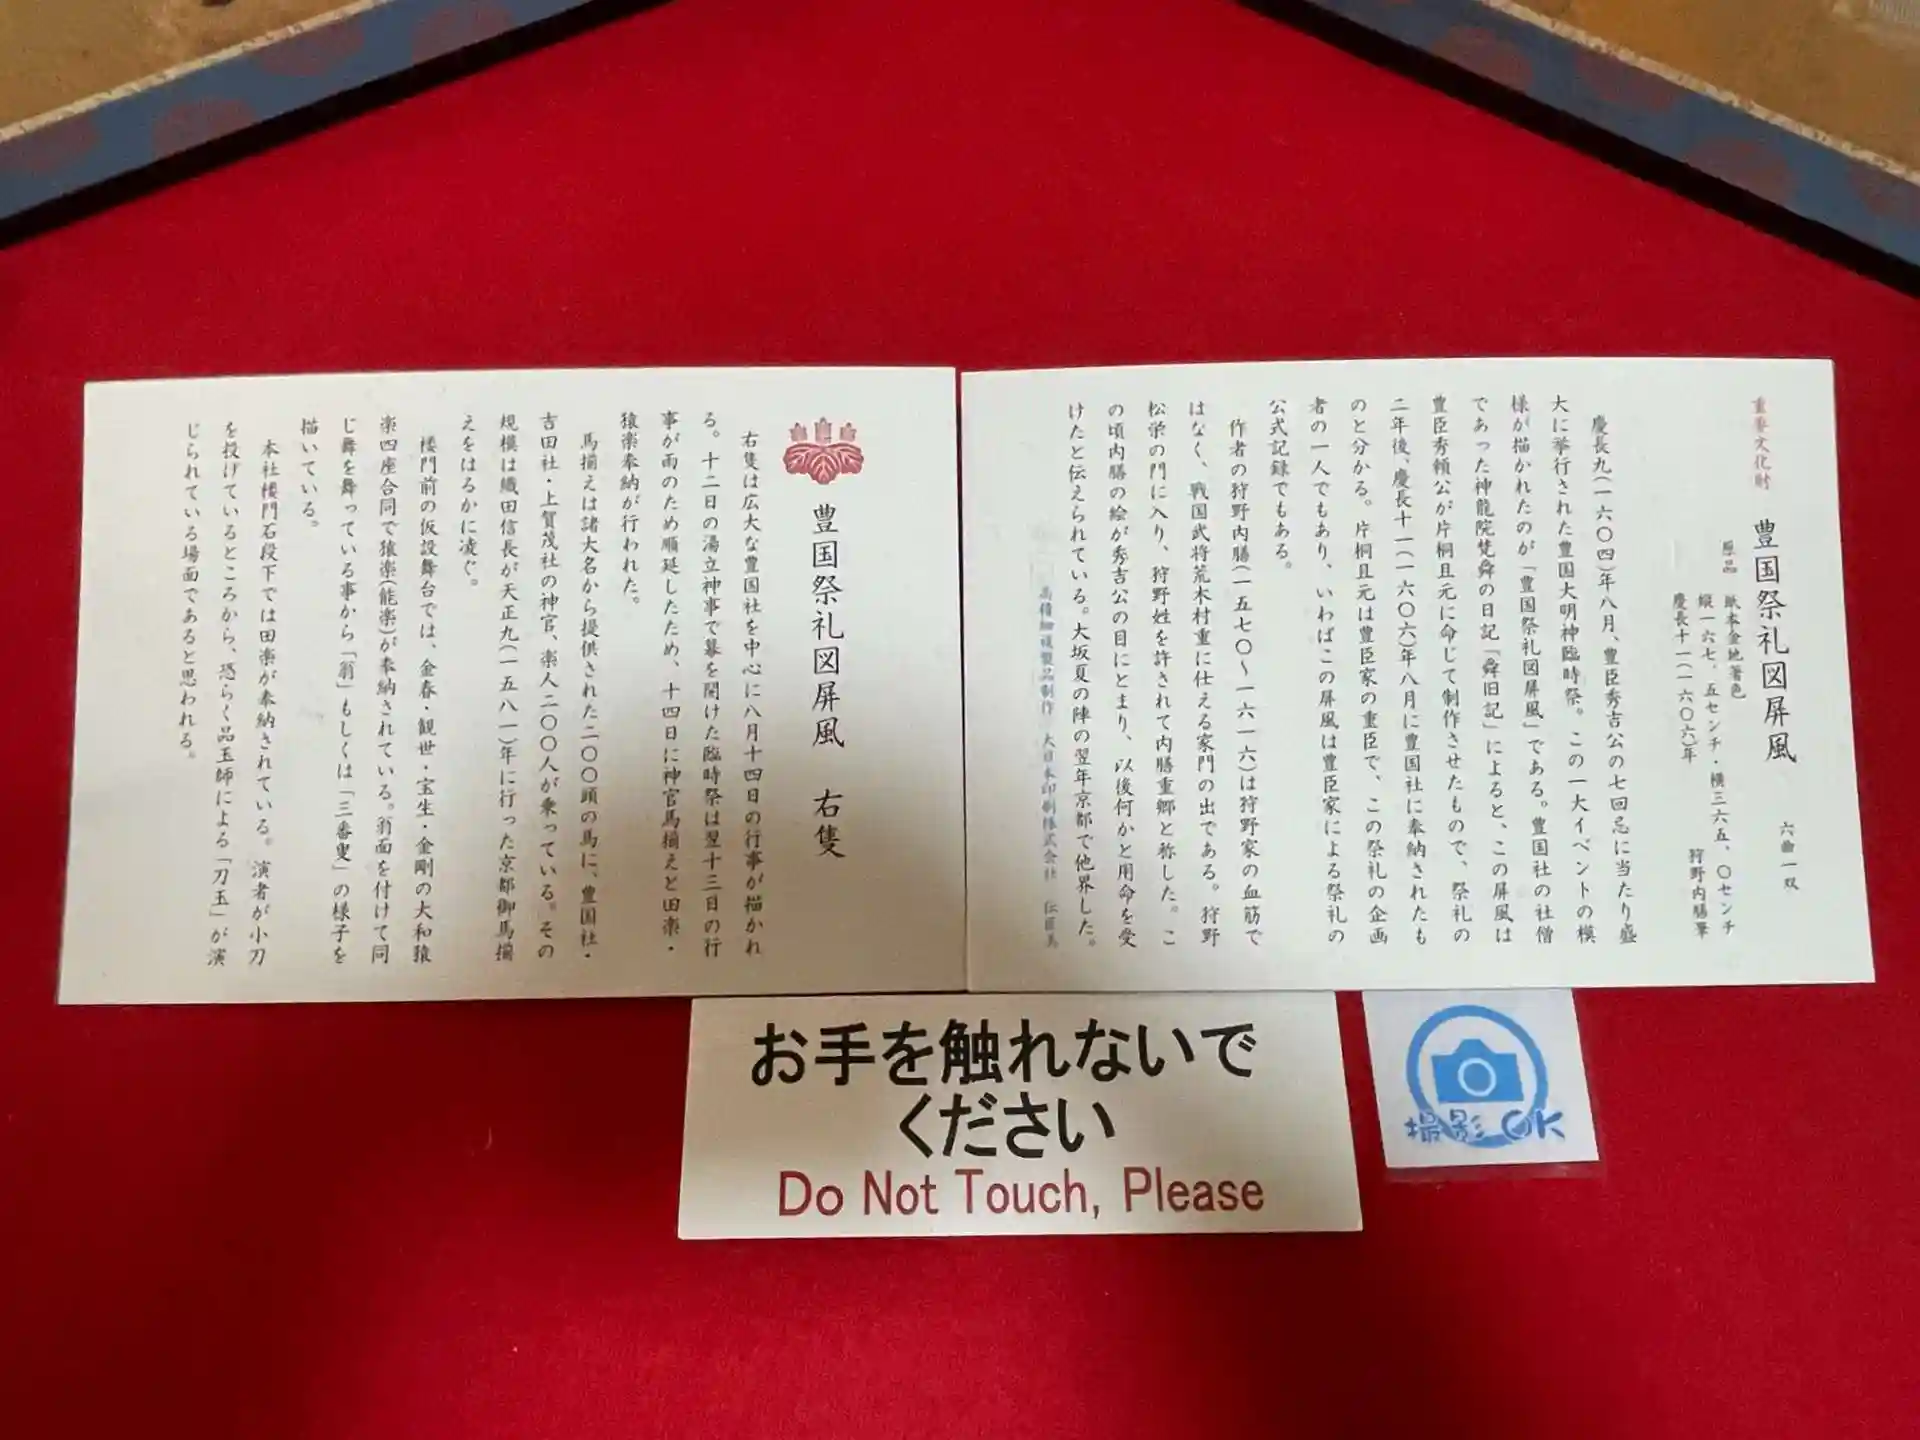 重要文化財 豊国祭礼図屏風 六曲一双
原品 紙本金地著色
縦一六七.五センチ・横三六五.〇センチ
慶長十一(一六〇六)年 狩野内膳筆
慶長九(一六〇四)年八月、豊臣秀吉公の七回忌に当たり盛
大に挙行された豊国大明神臨時祭。この一大イベントの模
様が描かれたのが「豊国祭礼図屏風」である。豊国社の社僧
であった神龍院梵舜の日記「舜旧記」によると、この屏風は
豊臣秀頼公が片桐且元に命じて制作させたもので、祭礼の
二年後、慶長十一(一六〇六)年八月に豊国社に奉納されたも
のと分かる。片桐且元は豊臣家の重臣で、この祭礼の企画
者の一人でもあり、いわばこの屏風は豊臣家による祭礼の
公式記録でもある。
作者の狩野内膳(一五七〇〜一六一六)は狩野家の血筋で
はなく、戦国武将荒木村重に仕える家門の出である。狩野
松栄の門に入り、狩野姓を許されて内膳重郷と称した。こ
の頃内膳の絵が秀吉公の目にとまり、以後何かと用命を受
けたと伝えられている。大坂夏の陣の翌年京都で他界した。
高精細複製品制作 大日本印刷株式会社 伝匠美
豊国祭礼図屏風 右隻
右隻は広大な豊国社を中心に八月十四日の行事が描かれ
る。十二日の湯立神事で幕を開けた臨時祭は翌十三日の行
事が雨のため順延したため、十四日に神官馬揃えと田楽・
猿楽奉納が行われた。
馬揃えは諸大名から提供された二〇〇頭の馬に、豊国社・
吉田社・上賀茂社の神官、楽人二〇〇人が乗っている。その
規模は織田信長が天正九(一五八一)年に行った京都御馬揃
えをはるかに凌ぐ。
楼門前の仮設舞台では、金春・観世・宝生・金剛の大和猿
楽四座合同で猿楽(能楽)が奉納されている。翁面を付けて同
じ舞を舞っている事から「翁」もしくは「三番叟」の様子を
描いている。
本社楼門石段下では田楽が奉納されている。演者が小刀
を投げているところから、恐らく品玉師による「刀玉」が演
じられている場面であると思われる。
お手を触れないで
ください
Do Not Touch, Please
撮影OK